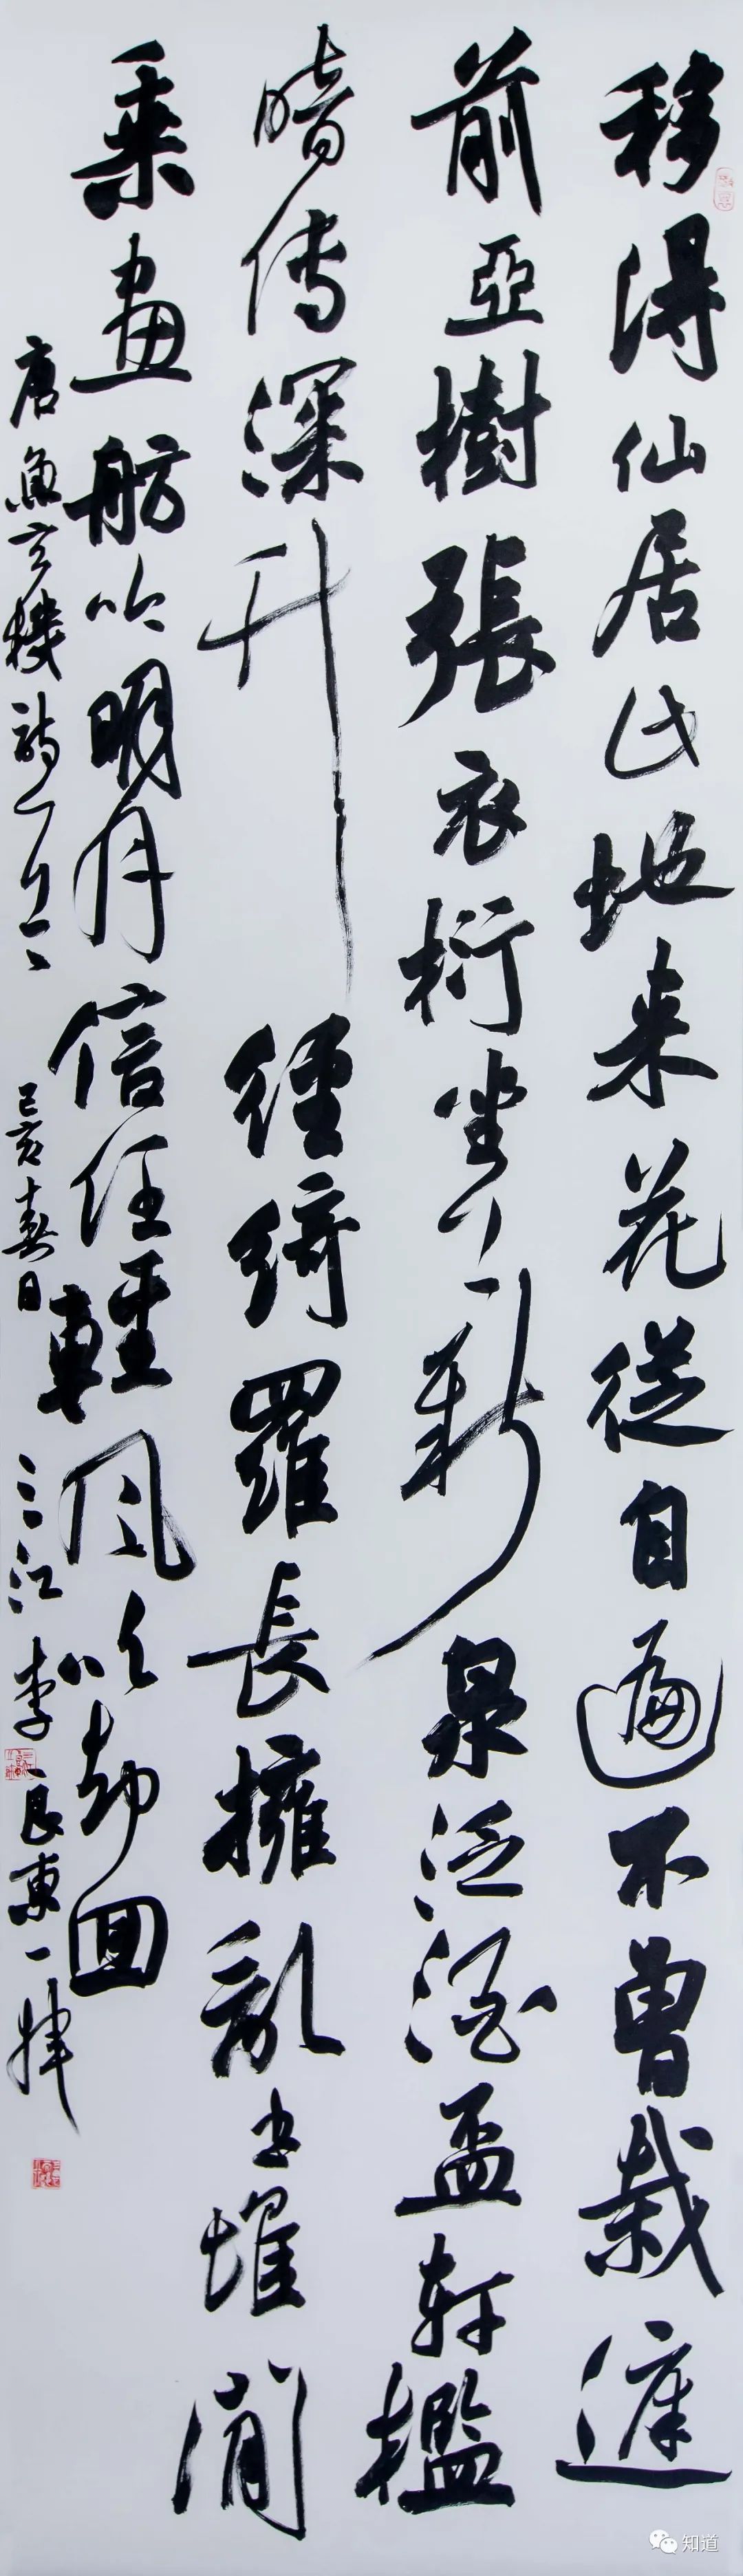 移得仙居此地来花從自遍不曾栽庭
前亞樹張衣桁坐上新泉泛酒盃軒檻
暗传深竹徑綺羅長擁乱书堆閒
乘畫舫吟明月信任輕風吹却回
唐魚玄機詩一首 己亥春日 三江李良東一揮
知道